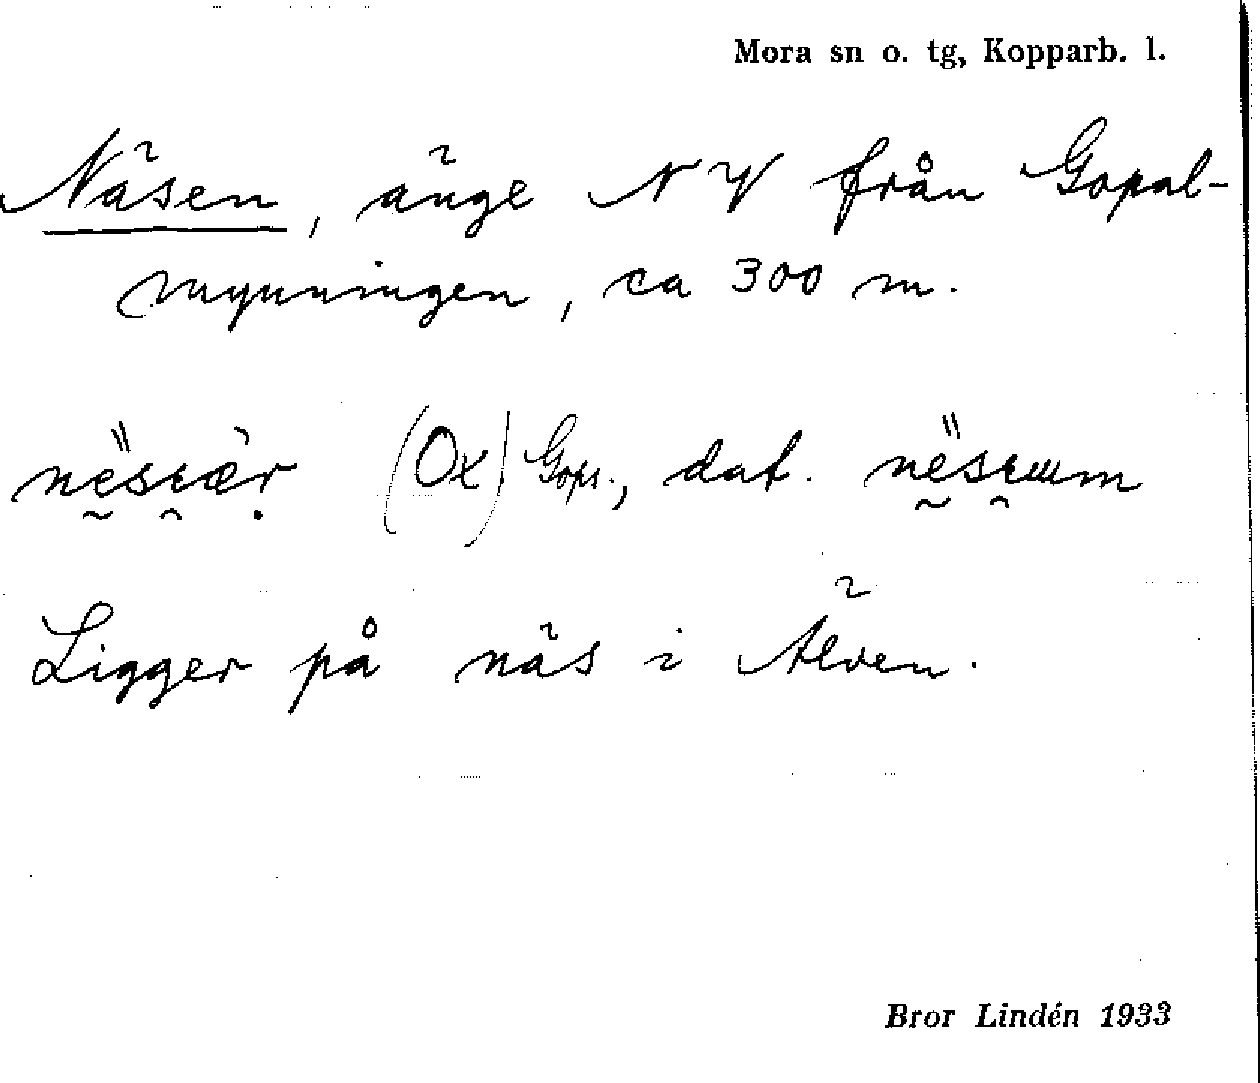 Mora sn o. tg, Kopparb. l.
Näsen, änge NV från Gopal-
mynningen, ca 300 m.
(Ox) Gops., dat.
Ligger på näs i Älven.
Bror Lindén 1933